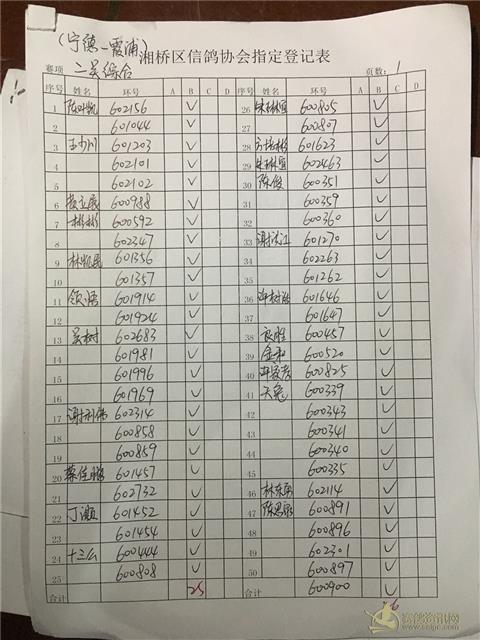 (宁德—霞浦)
湘桥区信鸽协会指定登记表
赛项 二关综合 页数:1
序号 姓名 环号 A B C D 序号 姓名 环号 A B C D
1 602156 ✓ 26 600805 ✓
2 601044 ✓ 27 600807 ✓
3 王少川 601203 ✓ 28 601623 ✓
4 602101 ✓ 29 602463 ✓
5 602102 ✓ 30 陈俊 600351 ✓
6 600988 ✓ 31 600359 ✓
7 彬彬 600592 ✓ 32 600360 ✓
8 602347 ✓ 33 601270 ✓
9 林凯民 601356 ✓ 34 602263 ✓
10 601357 ✓ 35 601262 ✓
11 领悟 601914 ✓ 36 601646 ✓
12 601924 ✓ 37 601647 ✓
13 吴树 602683 ✓ 38 良胜 600457 ✓
14 601981 ✓ 39 600520 ✓
15 601996 ✓ 40 600825 ✓
16 601969 ✓ 41 天兔 600339 ✓
17 602314 ✓ 42 600343 ✓
18 600858 ✓ 43 600341 ✓
19 600859 ✓ 44 600340 ✓
20 蔡佳鹏 601457 ✓ 45 600335 ✓
21 602732 ✓ 46 602114 ✓
22 丁灏 601452 ✓ 47 600891 ✓
23 601454 ✓ 48 600896 ✓
24 十三么 600444 ✓ 49 602301 ✓
25 600808 ✓ 50 600897 ✓
合计 25 合计 600900 ✓
赛鸽资讯网